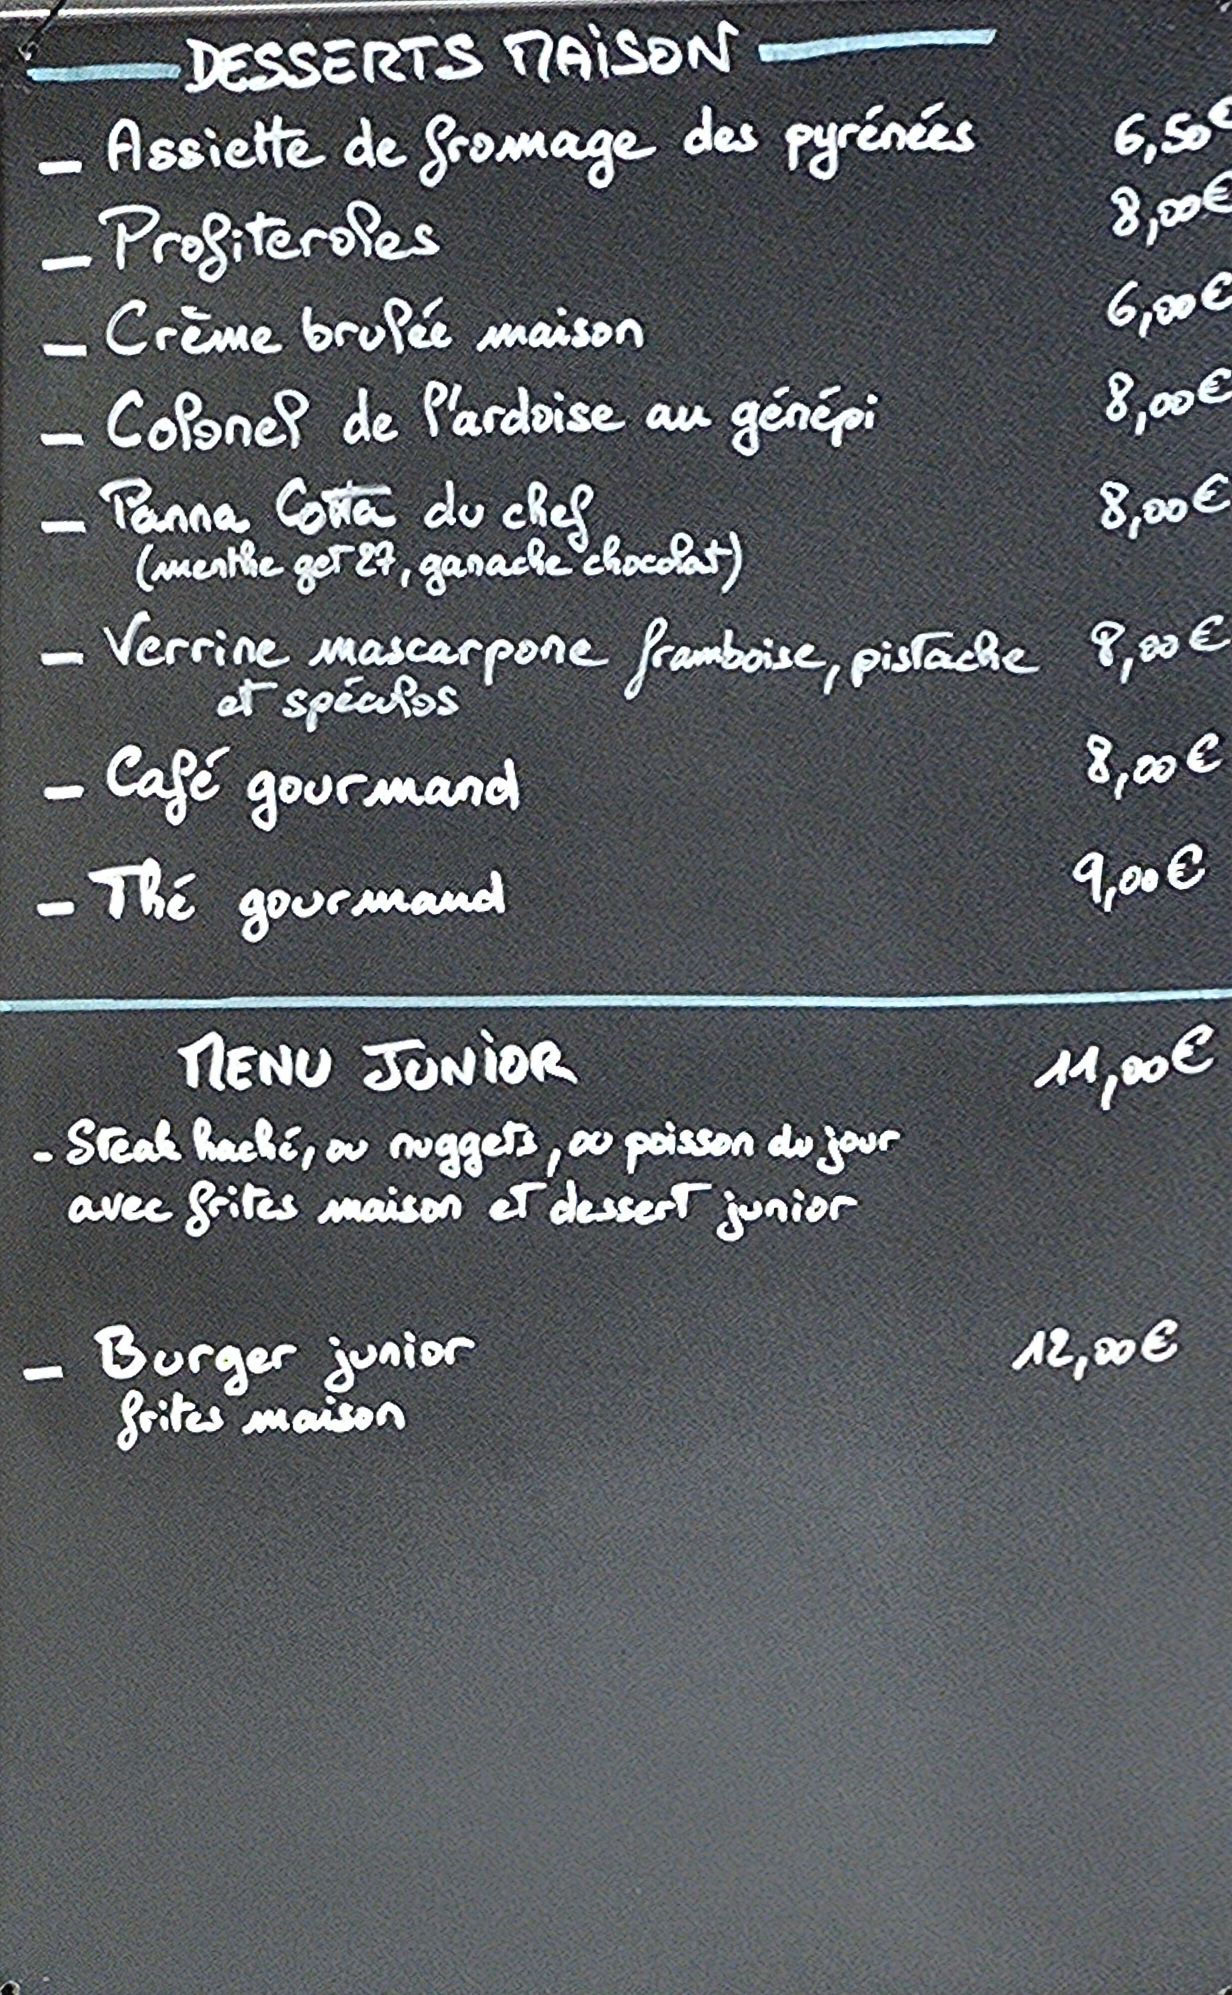 DESSERTS MAISON
- Assiette de fromage des pyrénées 6,50€
- Profiteroles 8,00€
- Crème brulée maison 6,00€
- Colonel de l'ardoise au génépi 8,00€
- Panna Cotta du chef 8,00€
(menthe get 27, ganache chocolat)
- Verrine mascarpone framboise, pistache 8,00€
et spéculos
- Café gourmand 8,00€
- Thé gourmand 9,00€
MENU JUNIOR 11,00€
- Steak haché, ou nuggets, ou poisson du jour
avec frites maison et dessert junior
- Burger junior 12,00€
frites maison